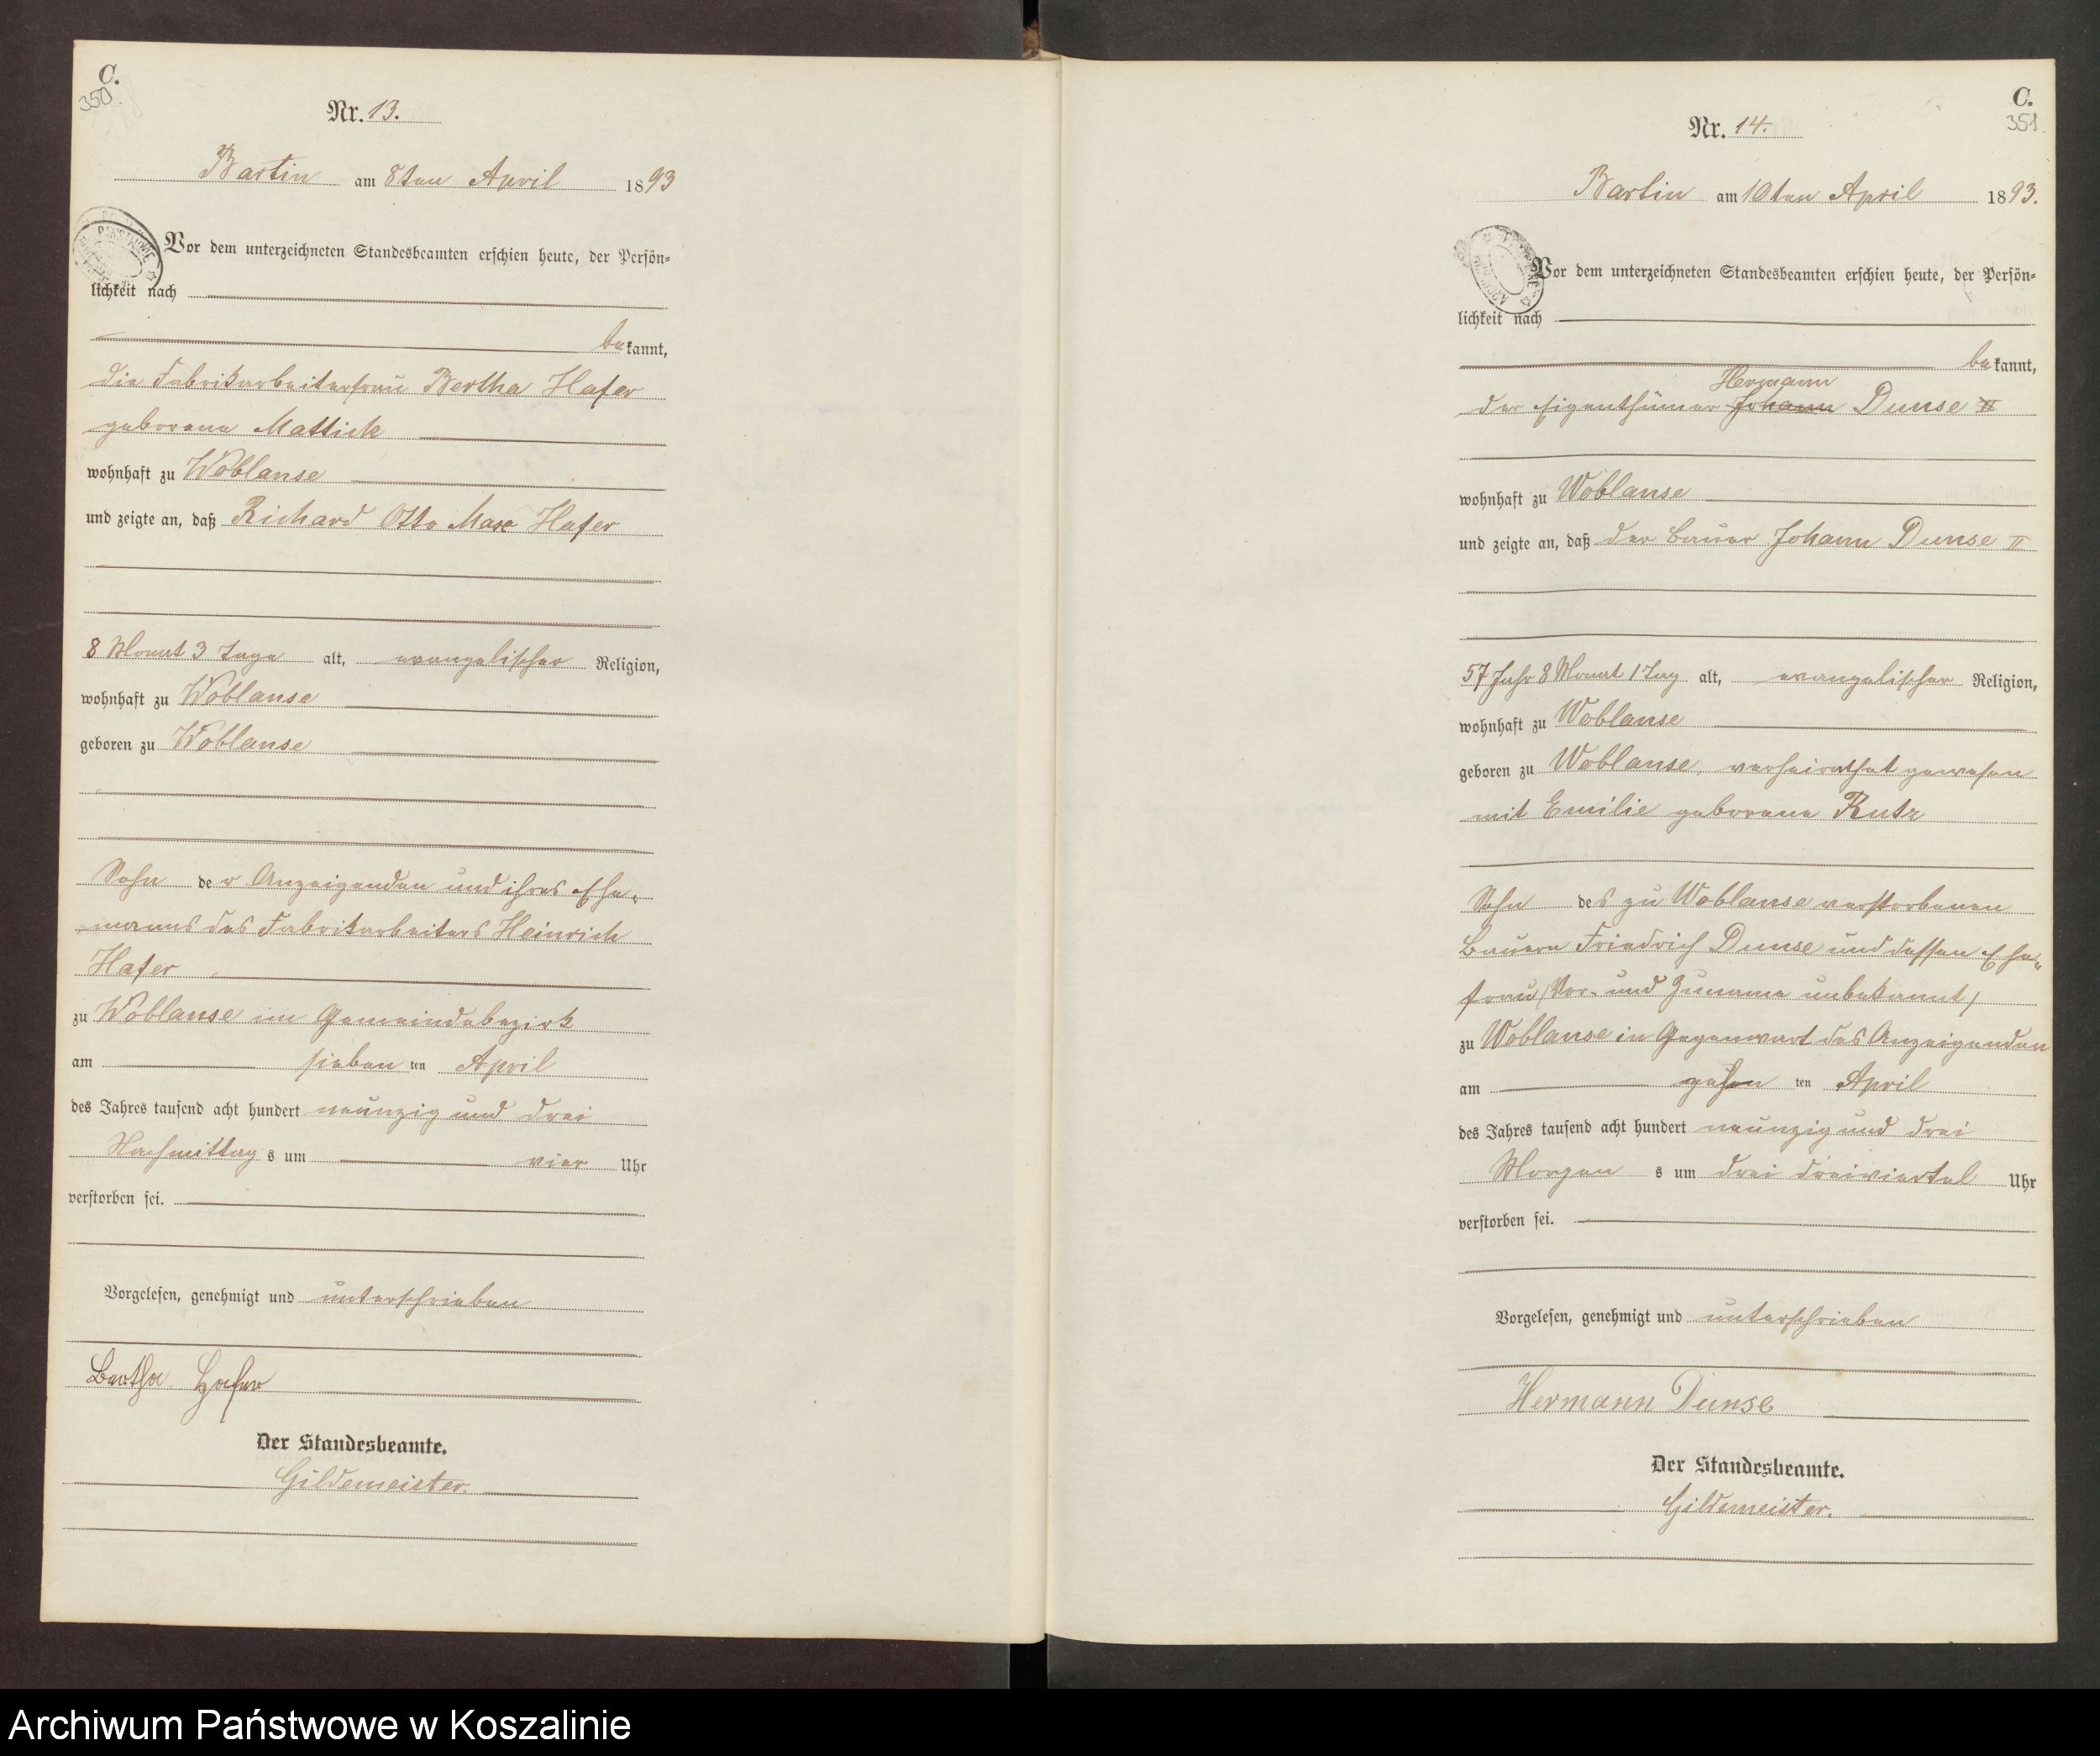 C.
350
Nr. 13.
Bartin am 8ten April 1893
Vor dem unterzeichneten Standesbeamten erschien heute, der Persön=
lichkeit nach
bekannt,
die Fabrikarbeiterfrau Bertha Hafer
geborene Mattick
wohnhaft zu Woblanse
und zeigte an, daß Richard Otto Max Hafer
8 Monat 3 Tage alt, evangelischer Religion,
wohnhaft zu Woblanse
geboren zu Woblanse
Sohn der Anzeigenden und ihres Ehe-
manns des Fabrikarbeiters Heinrich
Hafer
zu Woblanse im Gemeindebezirk
am sieben ten April
des Jahres tausend acht hundert neunzig und drei
Nachmittags um vier Uhr
verstorben sei.
Vorgelesen, genehmigt und unterschrieben
Bertha Hafer
Der Standesbeamte.
Gildemeister.
C.
351
Nr. 14.
Bartin am 10ten April 1893.
Vor dem unterzeichneten Standesbeamten erschien heute, der Persön=
lichkeit nach
bekannt,
Hermann
der Eigenthümer Johann Dunse II
wohnhaft zu Woblanse
und zeigte an, daß der Bauer Johann Dunse II
57 Jahr 8 Monat 1 Tag alt, evangelischer Religion,
wohnhaft zu Woblanse
geboren zu Woblanse, verheirathet gewesen
mit Emilie geborene Rutz
Sohn des zu Woblanse verstorbenen
Bauern Friedrich Dunse und dessen Ehe-
frau (Vor- und Zuname unbekannt)
zu Woblanse in Gegenwart des Anzeigenden
am zehn ten April
des Jahres tausend acht hundert neunzig und drei
Morgens um drei dreiviertel Uhr
verstorben sei.
Vorgelesen, genehmigt und unterschrieben
Hermann Dunse
Der Standesbeamte.
Gildemeister.
Archiwum Państwowe w Koszalinie